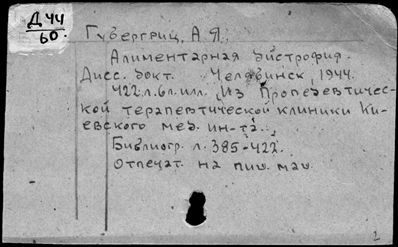 Д 44
60.
Губергриц, А.Я.
Алиментарная дистрофия.
Дисс. докт. Челябинск, 1944.
422 л. 6 л. илл. Из Пропедевтичес-
кой терапевтической клиники Ки-
евского мед. ин-та.
Библиогр. л. 385-422.
Отпечат. на пиш. маш.
2